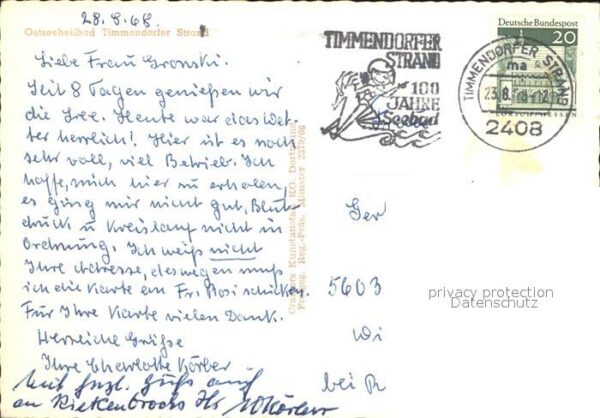 28.8.68
Ostseeheilbad Timmendorfer Strand
Liebe Frau Gronski.
Seit 8 Tagen genießen wir
die See. Heute war das Wet-
ter herrlich! Hier ist es noch
sehr voll, viel Betrieb. Ich
hoffe, mich hier zu erholen,
es ging mir nicht gut, Blut-
druck u Kreislauf nicht in
Ordnung. Ich weiß nicht
Ihre Adresse, deswegen muß
ich die Karte an Fr. Bosi schicken.
Für Ihre Karte vielen Dank.
Herzliche Grüße
Ihre Charlotte Körber
Mit frzl. Gruß auch
an Rietkenbrocks Ihr WKörber
Cramers Kunstanstalt KG, Dortmund
Freigeg. Reg.-Präs. Münster 2379/66
TIMMENDORFER
STRAND
100
JAHRE
Seebad
Deutsche Bundespost
20
TIMMENDORFER STRAND
ma
23.8.68-12
2408
Ger
5603
privacy protection
Datenschutz
Wi
bei R